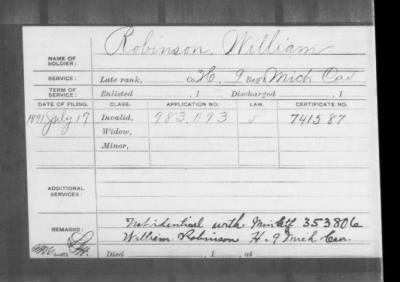 Robinson, William
NAME OF
SOLDIER:
SERVICE: Late rank, Co. H, 9 Reg't Mich Cav
TERM OF
SERVICE: Enlisted , 1 Discharged , 1
DATE OF FILING. CLASS. APPLICATION NO. LAW. CERTIFICATE NO.
1891 July 17 Invalid, 983,093 741587
Widow,
Minor,
ADDITIONAL
SERVICES:
REMARKS: Not identical with Min Ctf 353806
William Robinson H. 9 Mich Cav.
Died , 1 , at